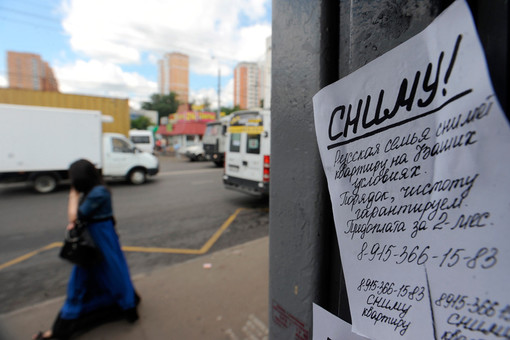 СНИМУ!
Русская семья снимет
квартиру на Ваших
условиях.
Порядок, чистоту
гарантируем.
Предоплата за 2 мес.
8-915-366-15-83
8-915-366-15-83
сниму
квартиру
8-915-366-15-83
сниму
квартиру